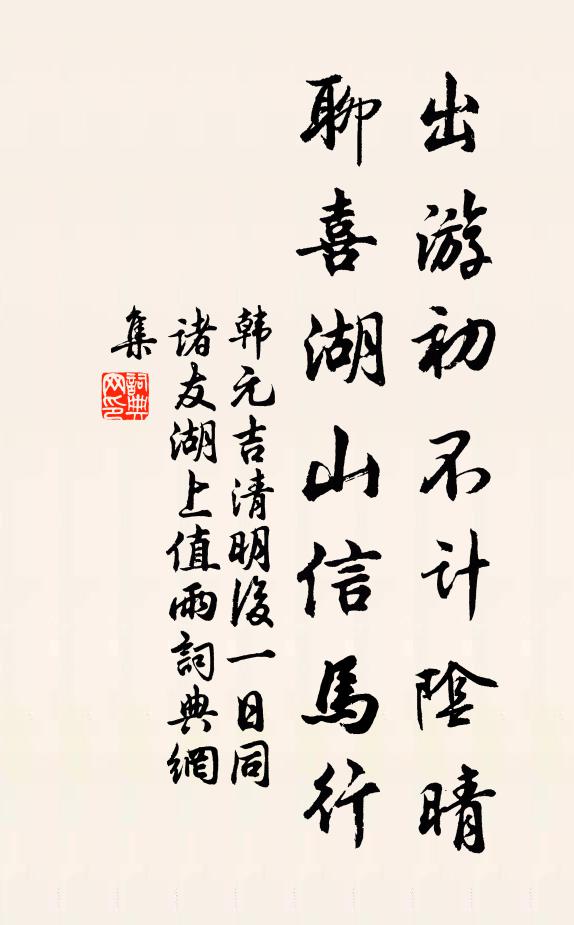 出游初不计陰晴
聊喜湖山信馬行
韩元吉清明後一日同
诸友湖上值雨詞典網
集
詞典
网印